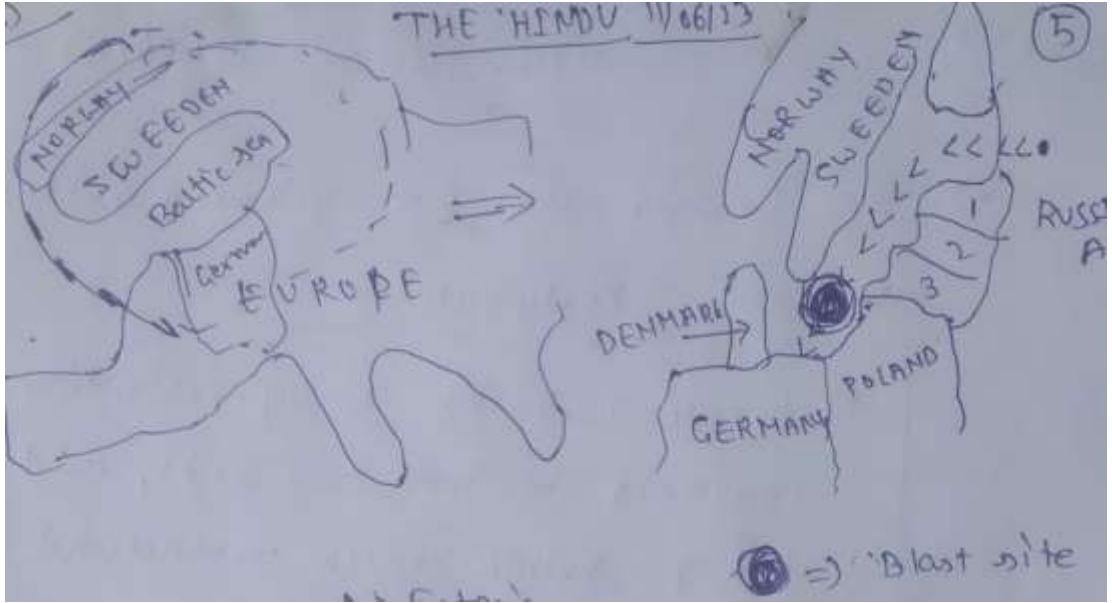 THE 'HINDU 11/06/23
5
NORWAY
SWEEDEN
Baltic sea
German
EUROPE
NORWAY
SWEEDEN
1
2
3
RUSSI
A
DENMARK
POLAND
GERMANY
=) 'Blast site